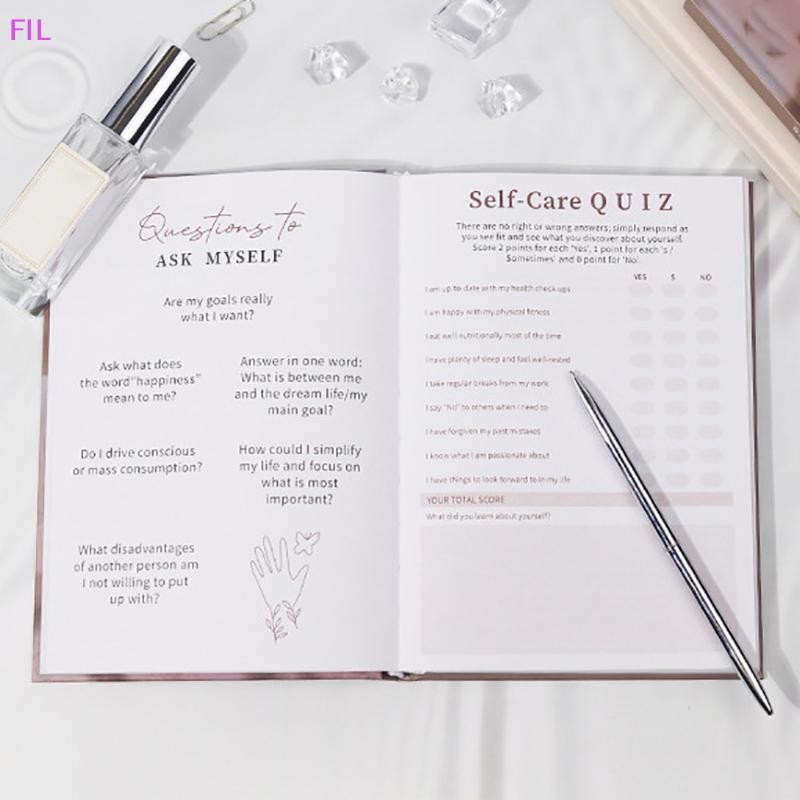 FIL
Questions to
ASK MYSELF
Are my goals really
what I want?
Ask what does
the word"happiness"
mean to me?
Answer in one word:
What is between me
and the dream life/my
main goal?
Do I drive conscious
or mass consumption?
How could I simplify
my life and focus on
what is most
important?
What disadvantages
of another person am
I not willing to put
up with?
Self-Care QUIZ
There are no right or wrong answers; simply respond as
you see fit and see what you discover about yourself.
Score 2 points for each 'Yes', 1 point for each 's /
Sometimes' and 0 point for 'No'.
YES S NO
I am up to date with my health check-ups
I am happy with my physical fitness
I eat well nutritionally most of the time
I have plenty of sleep and feel well-rested
I take regular breaks from my work
I say "NO" to others when I need to
I have forgiven my past mistakes
I know what I am passionate about
I have things to look forward to in my life
YOUR TOTAL SCORE
What did you learn about yourself?